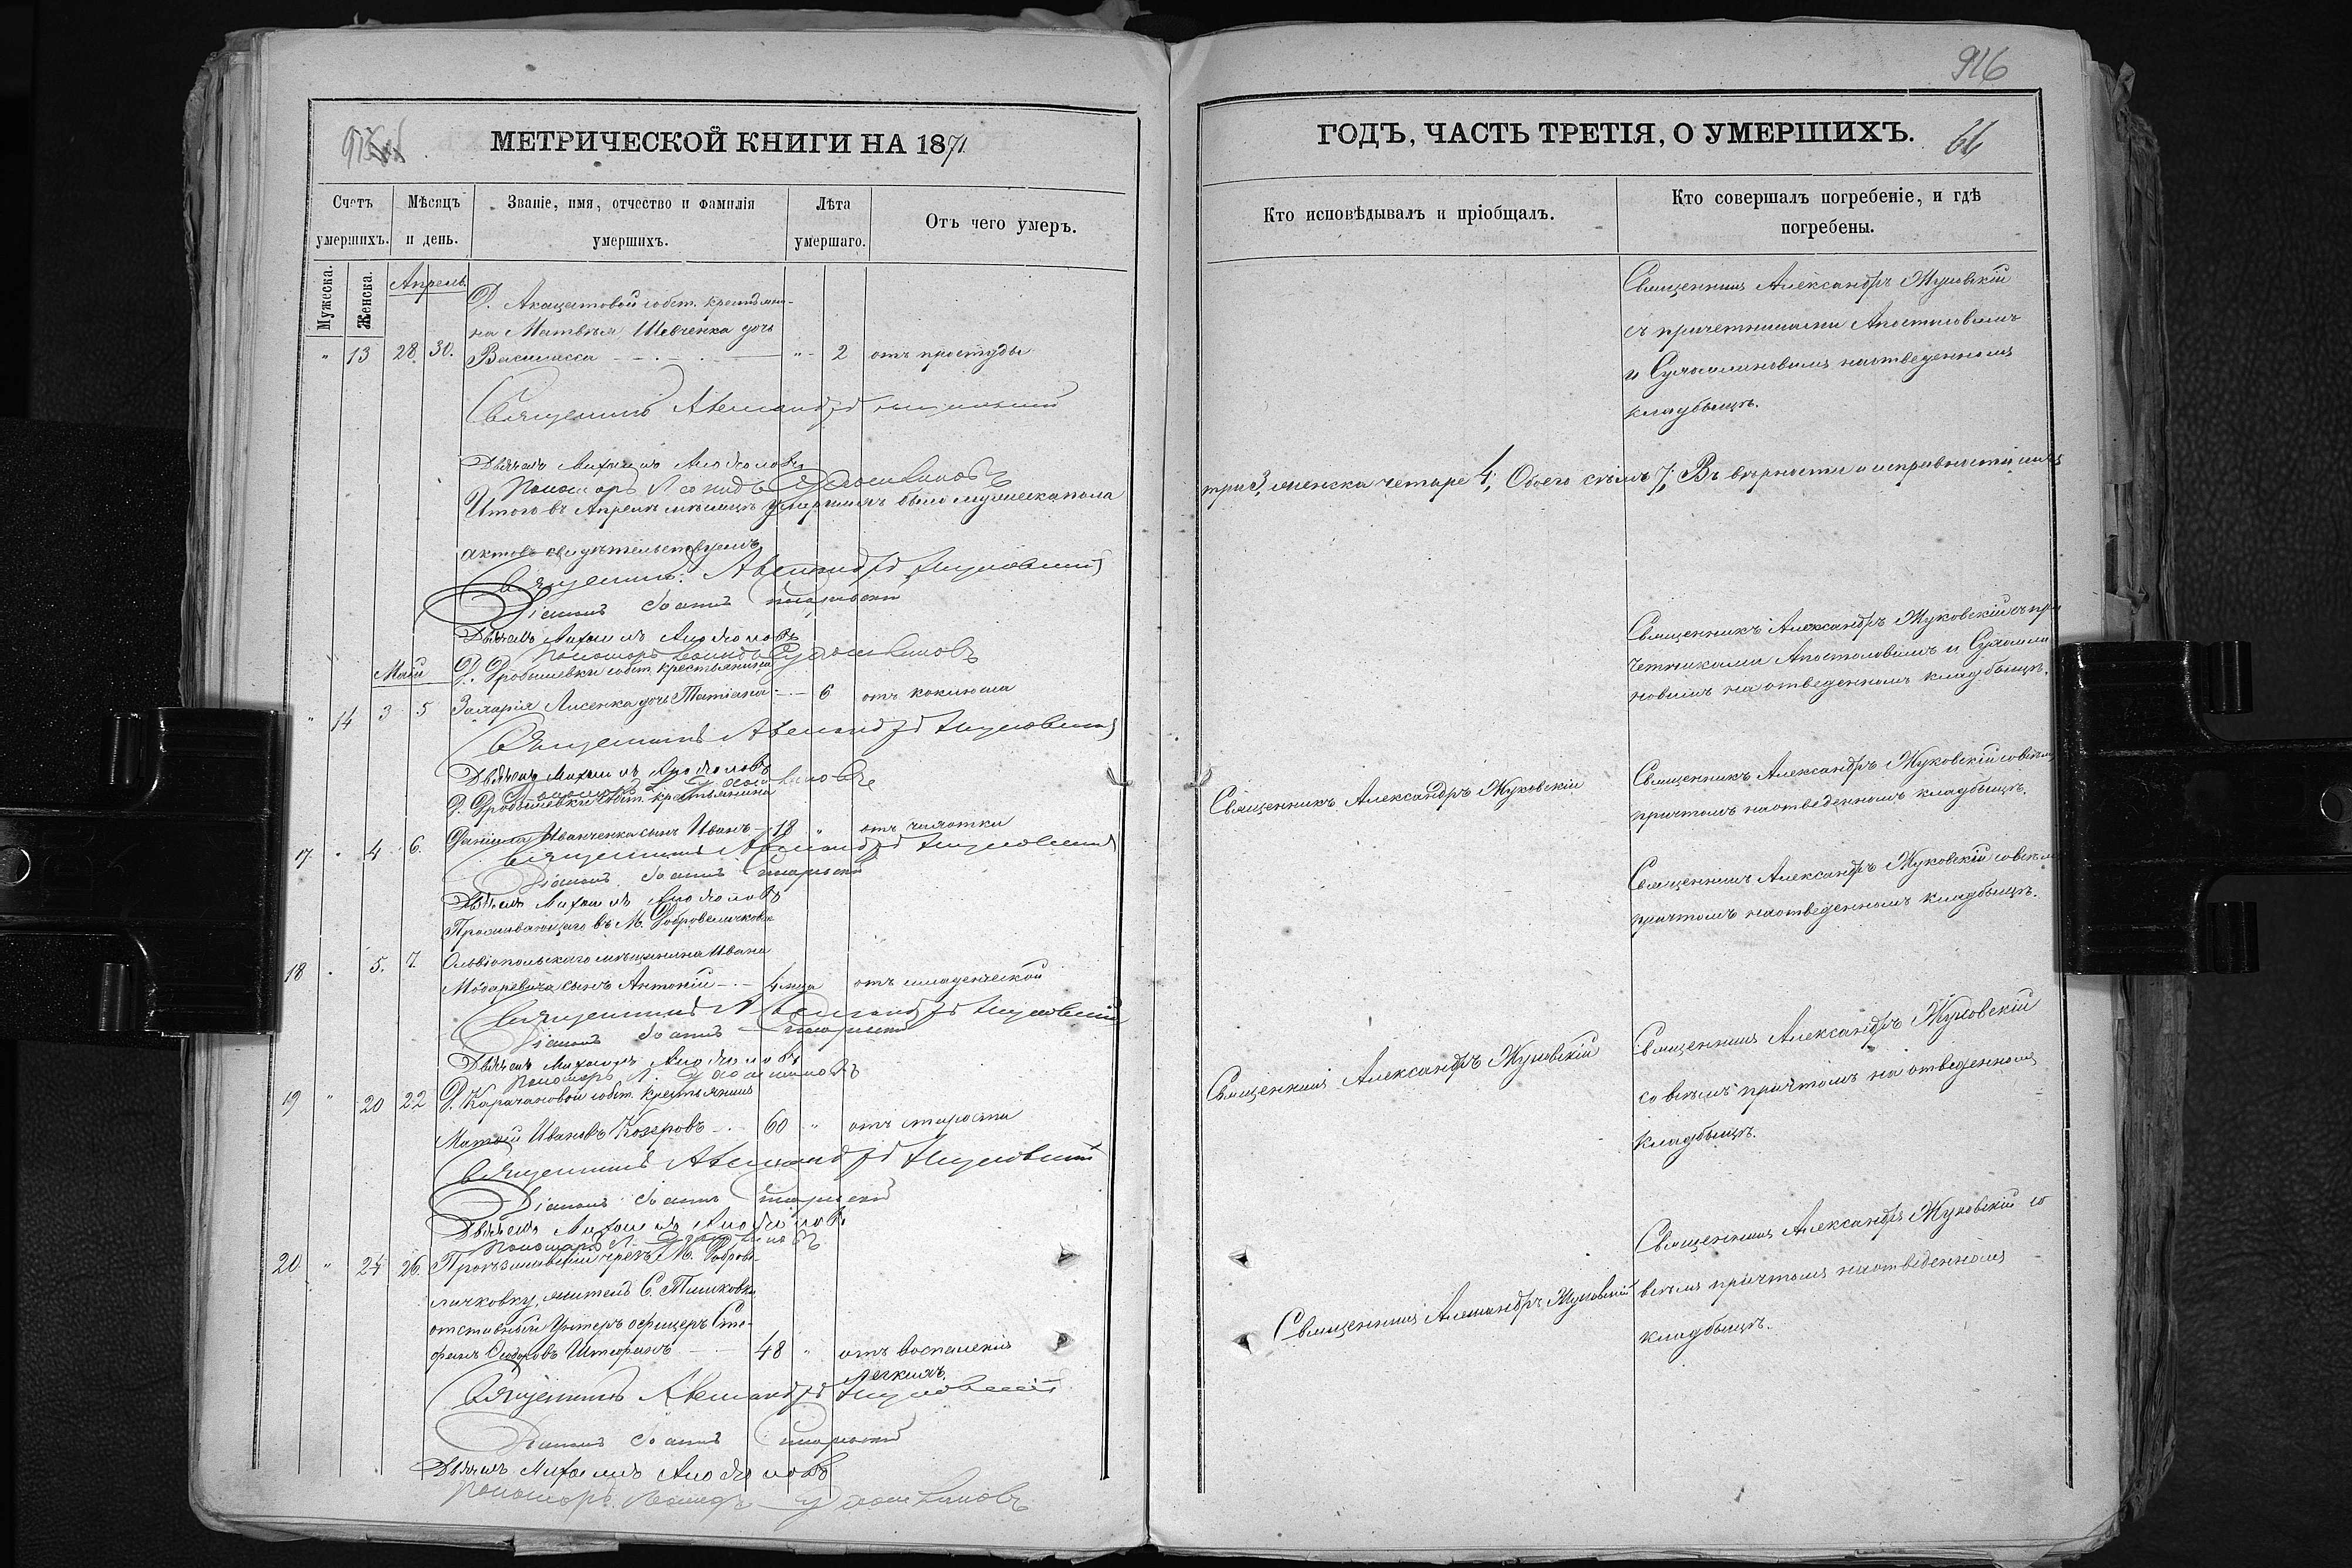 МЕТРИЧЕСКОЙ КНИГИ НА 1871
Счетъ умершихъ.
Мѣсяцъ и день.
Званіе, имя, отчество и фамилія умершихъ.
Лѣта умершаго.
Отъ чего умеръ.
Мужеска.
Женска.
Апрель.
Д. Акацатовой собст. крестьяни-
на Матвѣя Шевченка дочь
" 13 28 30. Василисса " 2 отъ простуды
Священникъ Александръ Жуковскій
Дьячекъ Михаилъ Апостоловъ
Пономаръ Леонидъ Сухомлиновъ
Итого въ Апрелѣ мѣсяцѣ умершихъ было мужеска пола
актовъ свидѣтельствуемъ
Священникъ Александръ Жуковскій
Діаконъ Іоаннъ
Дьячекъ Михаилъ Апостоловъ
Пономаръ Леонидъ Сухомлиновъ
Май
Д. Дробышевки собст. крестьянина
" 14 3 5 Захарія Лисенка дочь Татіана - 6 отъ коклюша
Священникъ Александръ Жуковскій
Дьячекъ Михаилъ Апостоловъ
Д. Дробышевки собст. крестьянина
17 " 4 6. Даніила Иванченка сынъ Иванъ 18 " отъ чахотки
Священникъ Александръ Жуковскій
Діаконъ Іоаннъ
Дьячекъ Михаилъ Апостоловъ
Проживающаго въ М. Добровеличковкѣ
18 " 5. 7. Ольвіопольскаго мѣщанина Ивана
сынъ Антоній 4 мца отъ младенческой
Священникъ Александръ Жуковскій
Діаконъ Іоаннъ
Дьячекъ Михаилъ Апостоловъ
Пономаръ Л. Сухомлиновъ
19 " 20 22 Д. собст. крестьянинъ
Матѳій Ивановъ 60 " отъ старости
Священникъ Александръ Жуковскій
Діаконъ Іоаннъ
Дьячекъ Михаилъ Апостоловъ
Пономаръ Л. Сухомлиновъ
20 " 24 26 чрезъ М. Доброве-
личковку, житель С. Тишковки
отставный Унтеръ офицеръ Сте-
фанъ 48 " отъ воспаленія
легкихъ.
Священникъ Александръ Жуковскій
Діаконъ Іоаннъ
Дьячекъ Михаилъ Апостоловъ
Пономаръ Леонидъ Сухомлиновъ
916
ГОДЪ, ЧАСТЬ ТРЕТІЯ, О УМЕРШИХЪ.
66
Кто исповѣдывалъ и пріобщалъ.
Кто совершалъ погребеніе, и гдѣ погребены.
Священникъ Александръ Жуковскій
съ причетниками Апостоловымъ
и Сухомлиновымъ на отведенномъ
кладбищѣ.
три 3, женска четыре 4; Обоего семь 7; Въ вѣрности и исправности сихъ
Священникъ Александръ Жуковскій съ при
четниками Апостоловымъ и Сухомли
новымъ на отведенномъ кладбищѣ.
Священникъ Александръ Жуковскій
Священникъ Александръ Жуковскій совсѣмъ
причтомъ на отведенномъ кладбищѣ.
Священникъ Александръ Жуковскій совсѣмъ
причтомъ на отведенномъ кладбищѣ.
Священникъ Александръ Жуковскій
Священникъ Александръ Жуковскій
со всѣмъ причтомъ на отведенномъ
кладбищѣ.
Священникъ Александръ Жуковскій
Священникъ Александръ Жуковскій со
всѣмъ причтомъ на отведенномъ
кладбищѣ.